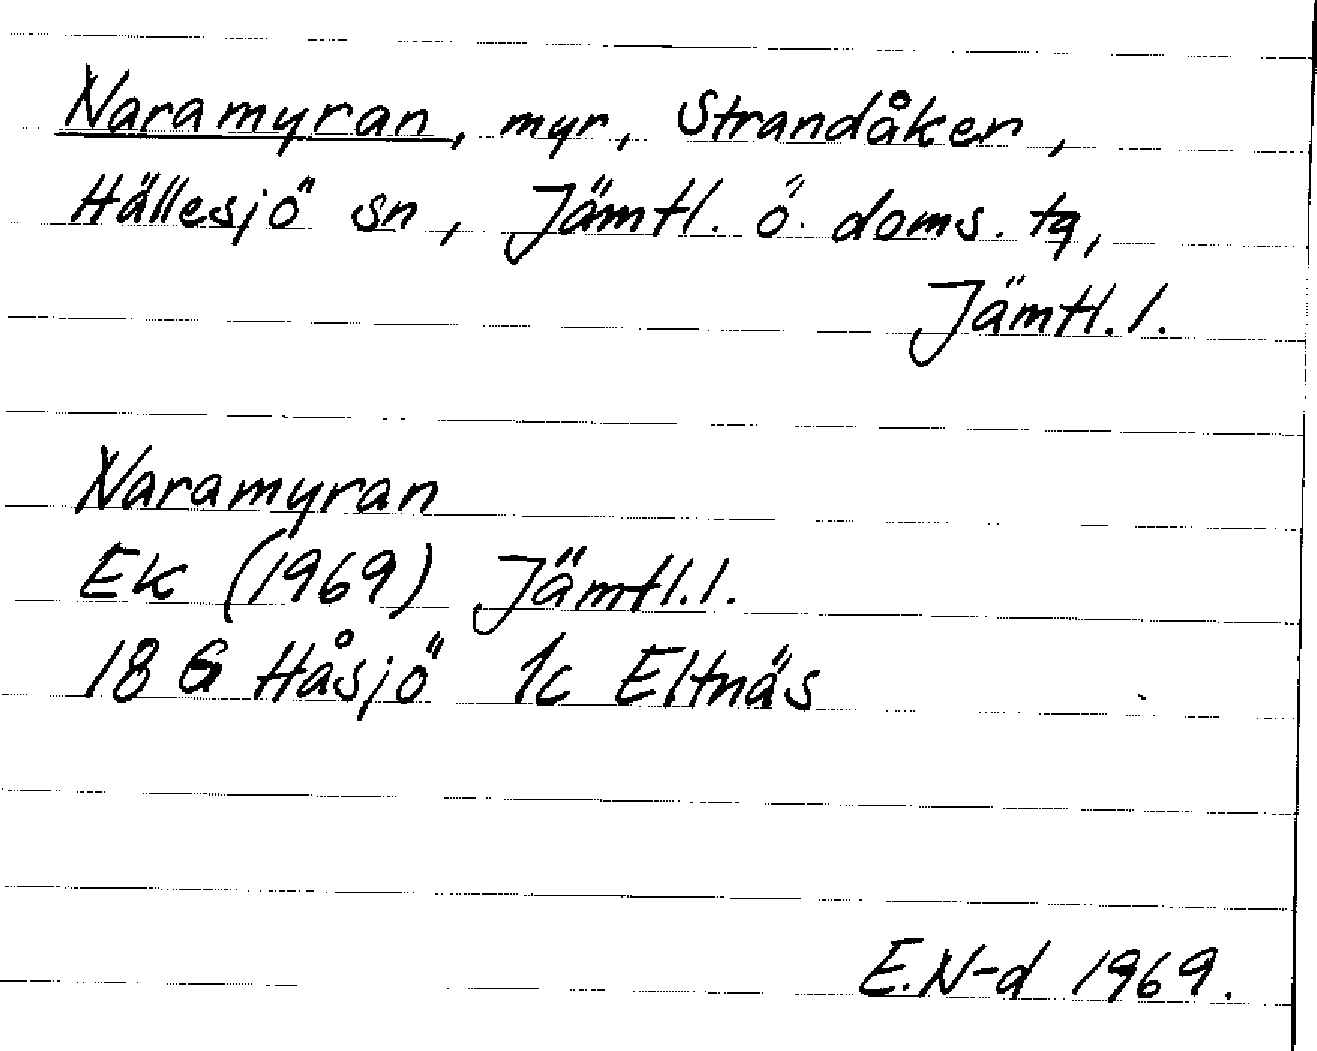 Naramyran, myr, Strandåker,
Hällesjö sn, Jämtl. ö. doms. tg,
Jämtl. l.
Naramyran
Ek (1969) Jämtl. l.
18 G Håsjö 1c Eltnäs
E.N-d 1969.